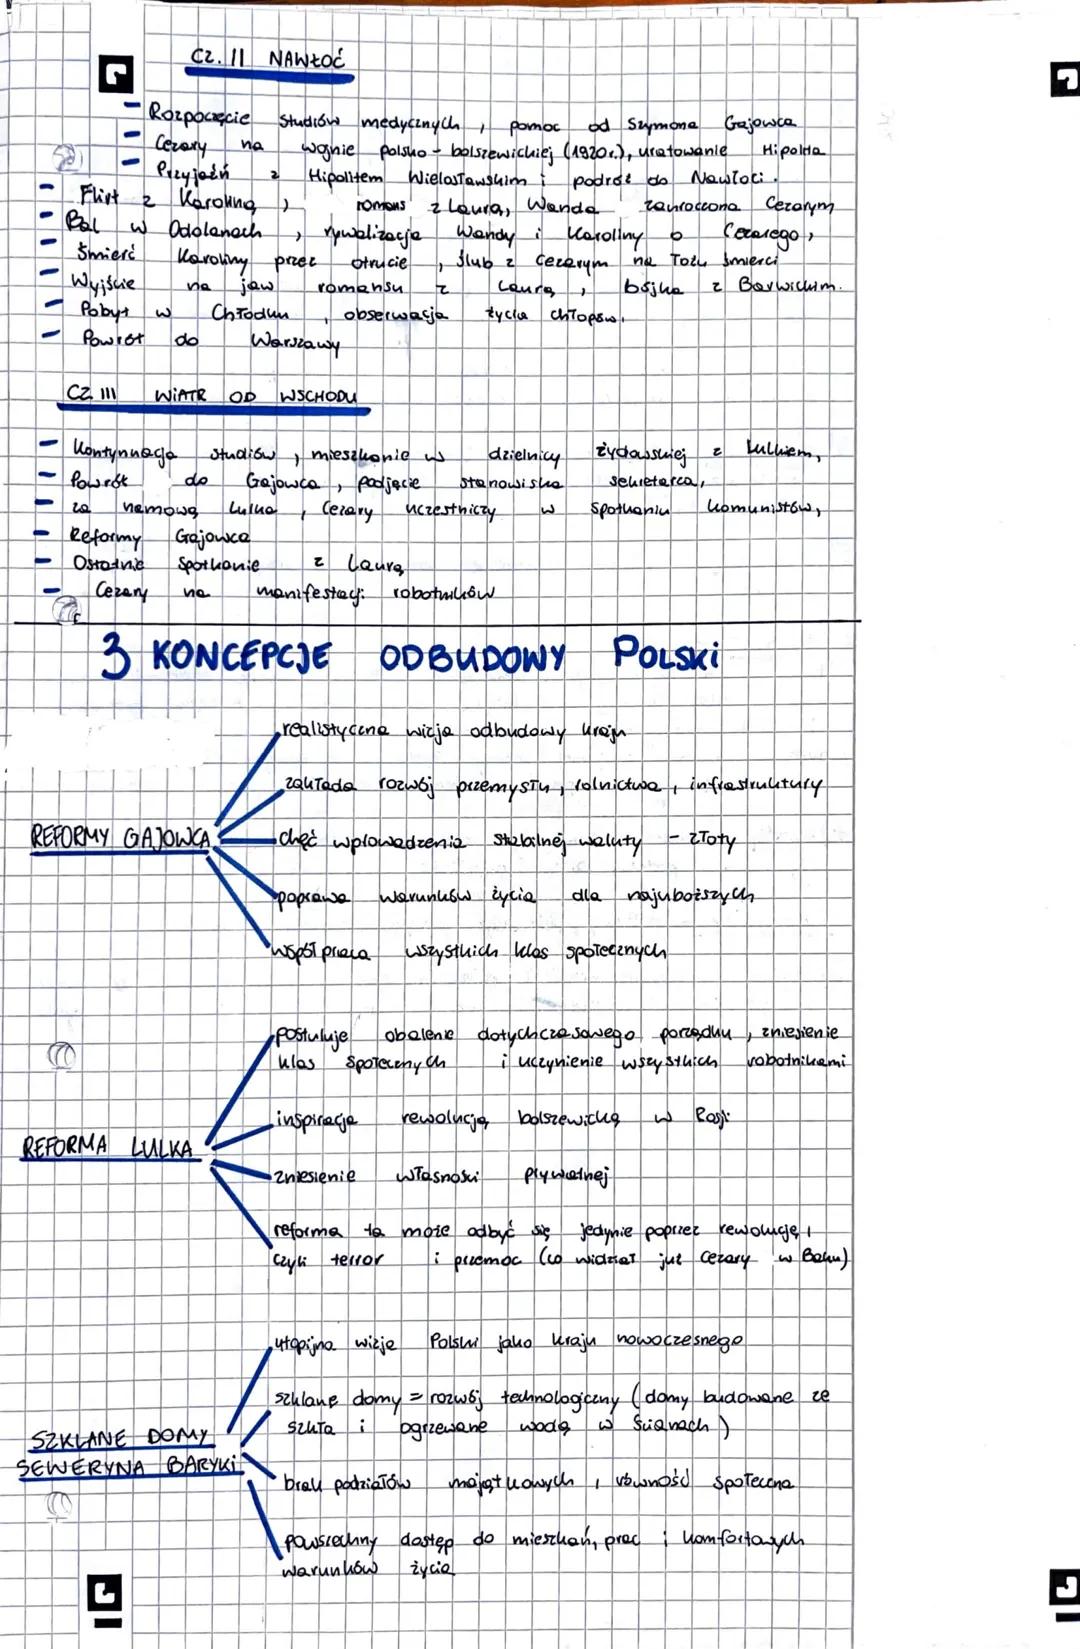 CZ. II NAWŁOĆ
- Rozpoczęcie studiów medycznych, pomoc od Szymona Gajowca
- Cezary na wojnie polsko-bolszewickiej (1920r.), uratowanie Hipolita
- Przyjaźń z Hipolitem Wielosławskim i podróż do Nawłoci.
- Flirt z Karoliną, romans z Laurą, Wanda zauroczona Cezarym
- Bal w Odolanach, rywalizacja Wandy i Karoliny o Cezarego,
- Śmierć Karoliny przez otrucie, ślub z Cezarym na łożu śmierci
- Wyjście na jaw romansu z Laurą, bójka z Barwickim.
- Pobyt w Chłodku, obserwacja życia chłopów.
- Powrót do Warszawy
CZ. III WIATR OD WSCHODU
- Kontynuacja studiów, mieszkanie w dzielnicy żydowskiej z Lulkiem,
- Powrót do Gajowca, podjęcie stanowiska sekretarza,
- za namową Lulka, Cezary uczestniczy w spotkaniu komunistów,
- Reformy Gajowca
- Ostatnie spotkanie z Laurą
- Cezary na manifestacji robotników
3 KONCEPCJE ODBUDOWY POLSKI
realistyczna wizja odbudowy kraju
zakłada rozwój przemysłu, rolnictwa, infrastruktury
REFORMY GAJOWCA
chęć wprowadzenia stabilnej waluty - złoty
poprawa warunków życia dla najuboższych
współpraca wszystkich klas społecznych
postuluje obalenie dotychczasowego porządku, zniesienie
klas społecznych i uczynienie wszystkich robotnikami
inspiracja rewolucją bolszewicką w Rosji
REFORMA LULKA
zniesienie własności prywatnej
reforma ta może odbyć się jedynie poprzez rewolucję,
czyli terror i przemoc (co widział już Cezary w Baku)
utopijna wizja Polski jako kraju nowoczesnego
szklane domy = rozwój technologiczny (domy budowane ze
szkła i ogrzewane wodą w ścianach)
SZKLANE DOMY
SEWERYNA BARYKI
brak podziałów majątkowych, równość społeczna
powszechny dostęp do mieszkań, prac i komfortowych
warunków życia